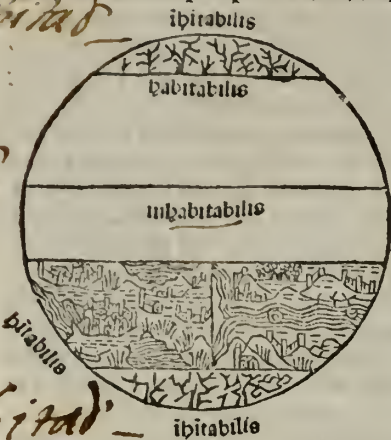 ihitabilis
habitabilis
inhabitabilis
hitabilis
ihitabilis